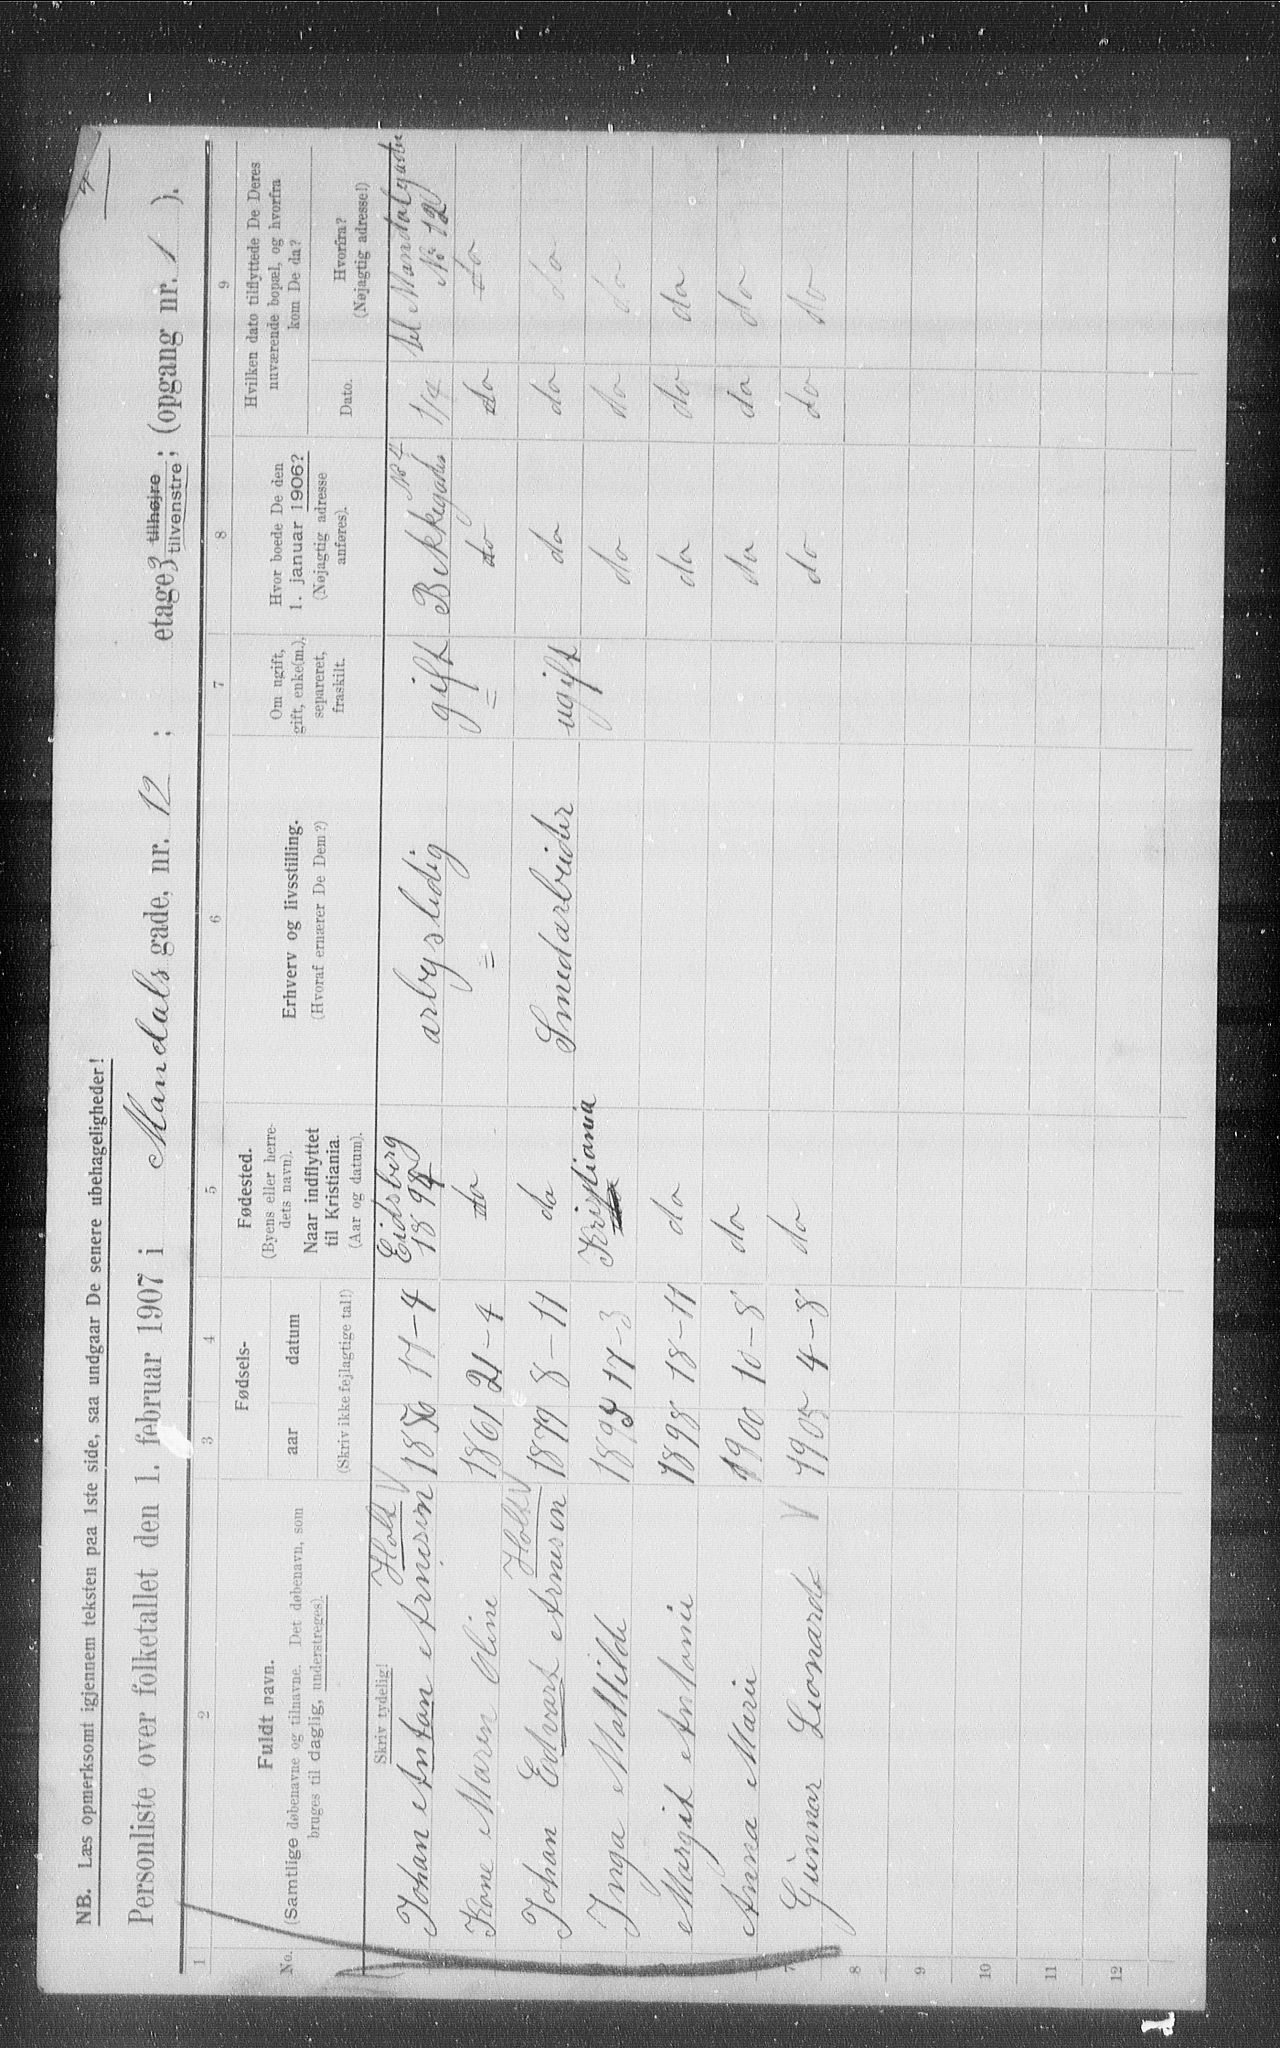 4
NB. Læs opmerksomt igjennem teksten paa 1ste side, saa undgaar De senere ubehageligheder!
Personliste over folketallet den 1. februar 1907 i Mandals gade, nr. 12 ; etage 3 tilhøjre tilvenstre; (opgang nr. 1 ).
1 2 3 4 5 6 7 8 9
No. Fuldt navn. (Samtlige døbenavne og tilnavne. Det døbenavn, som bruges til daglig, understreges). Skriv tydelig!
Fødsels- aar datum (Skriv ikke fejlagtige tal!)
Fødested. (Byens eller herredets navn). Naar indflyttet til Kristiania. (Aar og datum).
Erhverv og livsstilling. (Hvoraf ernærer De Dem?)
Om ugift, gift, enke(m.), separeret, fraskilt.
Hvor boede De den 1. januar 1906? (Nøjagtig adresse anføres).
Hvilken dato tilflyttede De Deres nuværende bopæl, og hvorfra kom De da? Dato. Hvorfra? (Nøjagtig adresse!)
Holt
Johan Anton Arnesen 1856 17-4 Eidsberg 1894 arbysledig gift Bekkegaden No 4 1/4 til Mandalgaden No 12
Kone Maren Oline 1861 21-4 do = = do do do
Holt
Johan Edvart Arnesen 1879 8-11 do Smedarbeider ugift do do do
Inga Mattilde 17-3 Kristiania do do do
Margit Antonie 1898 18-11 do do do do
Anna Marie 1900 10-8 do do do do
7 Gunnar Leonard 1905 4-8 do do do do
8
9
10
11
12
1